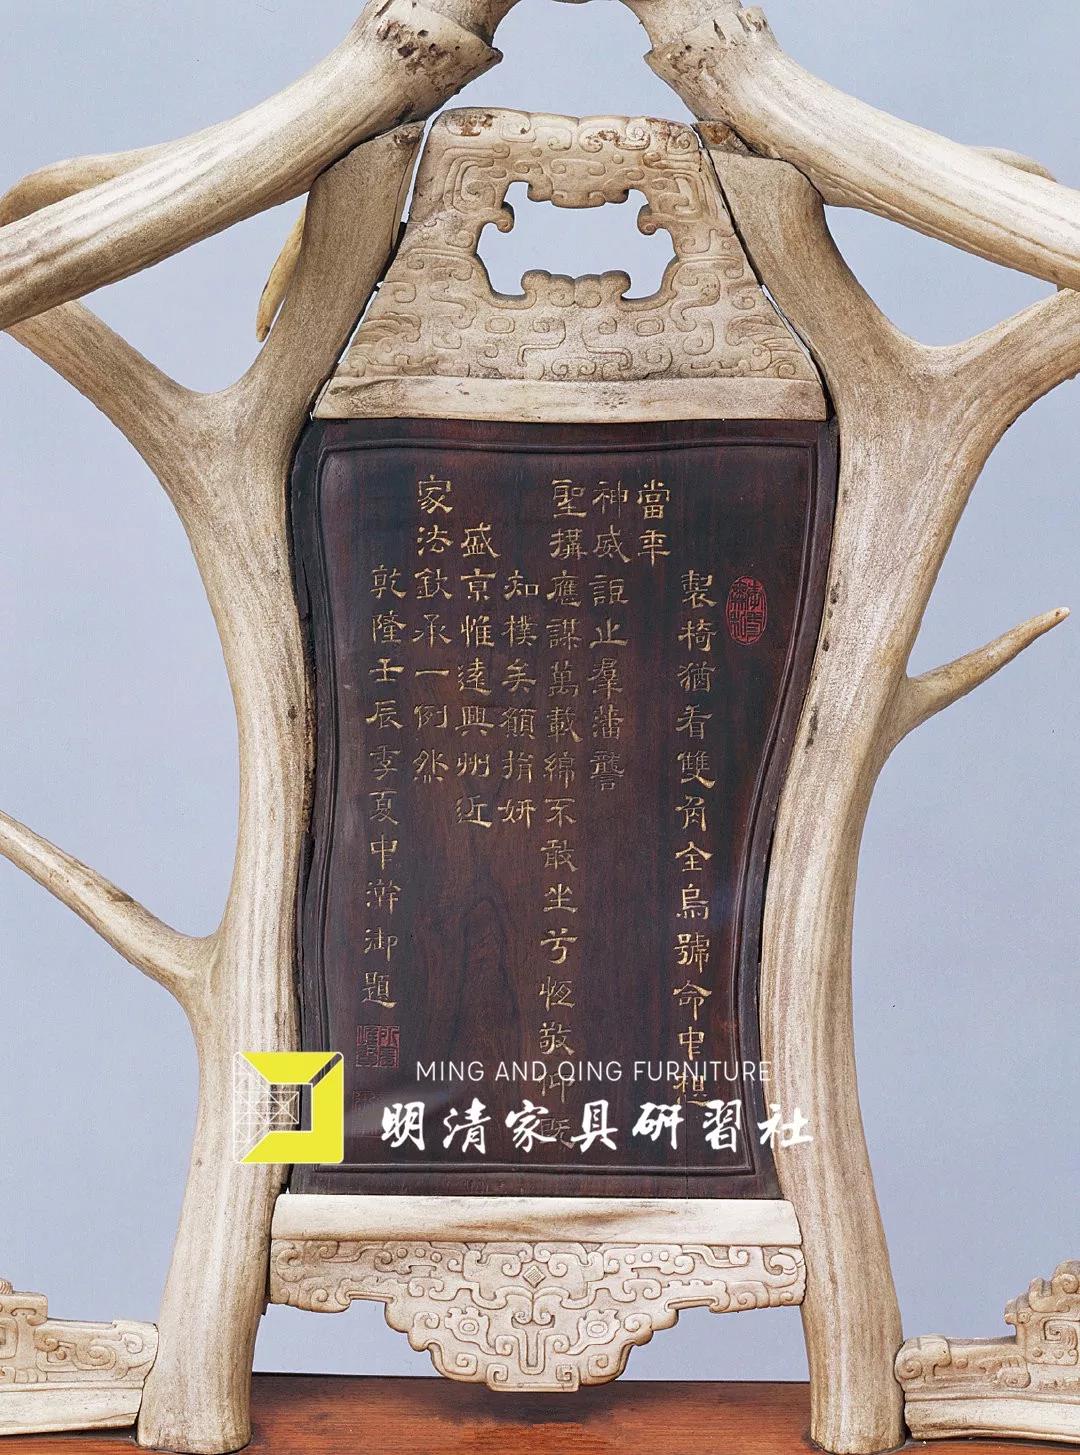 製椅猶看雙角全烏號命中想
當年
神威詎止羣藩讋
聖搆應謀萬載綿不敢坐兮恆敬仰既
知樸矣願捐妍
盛京惟遠興州近
家法欽承一例然
乾隆壬辰季夏中澣御題
MING AND QING FURNITURE
明清家具研習社